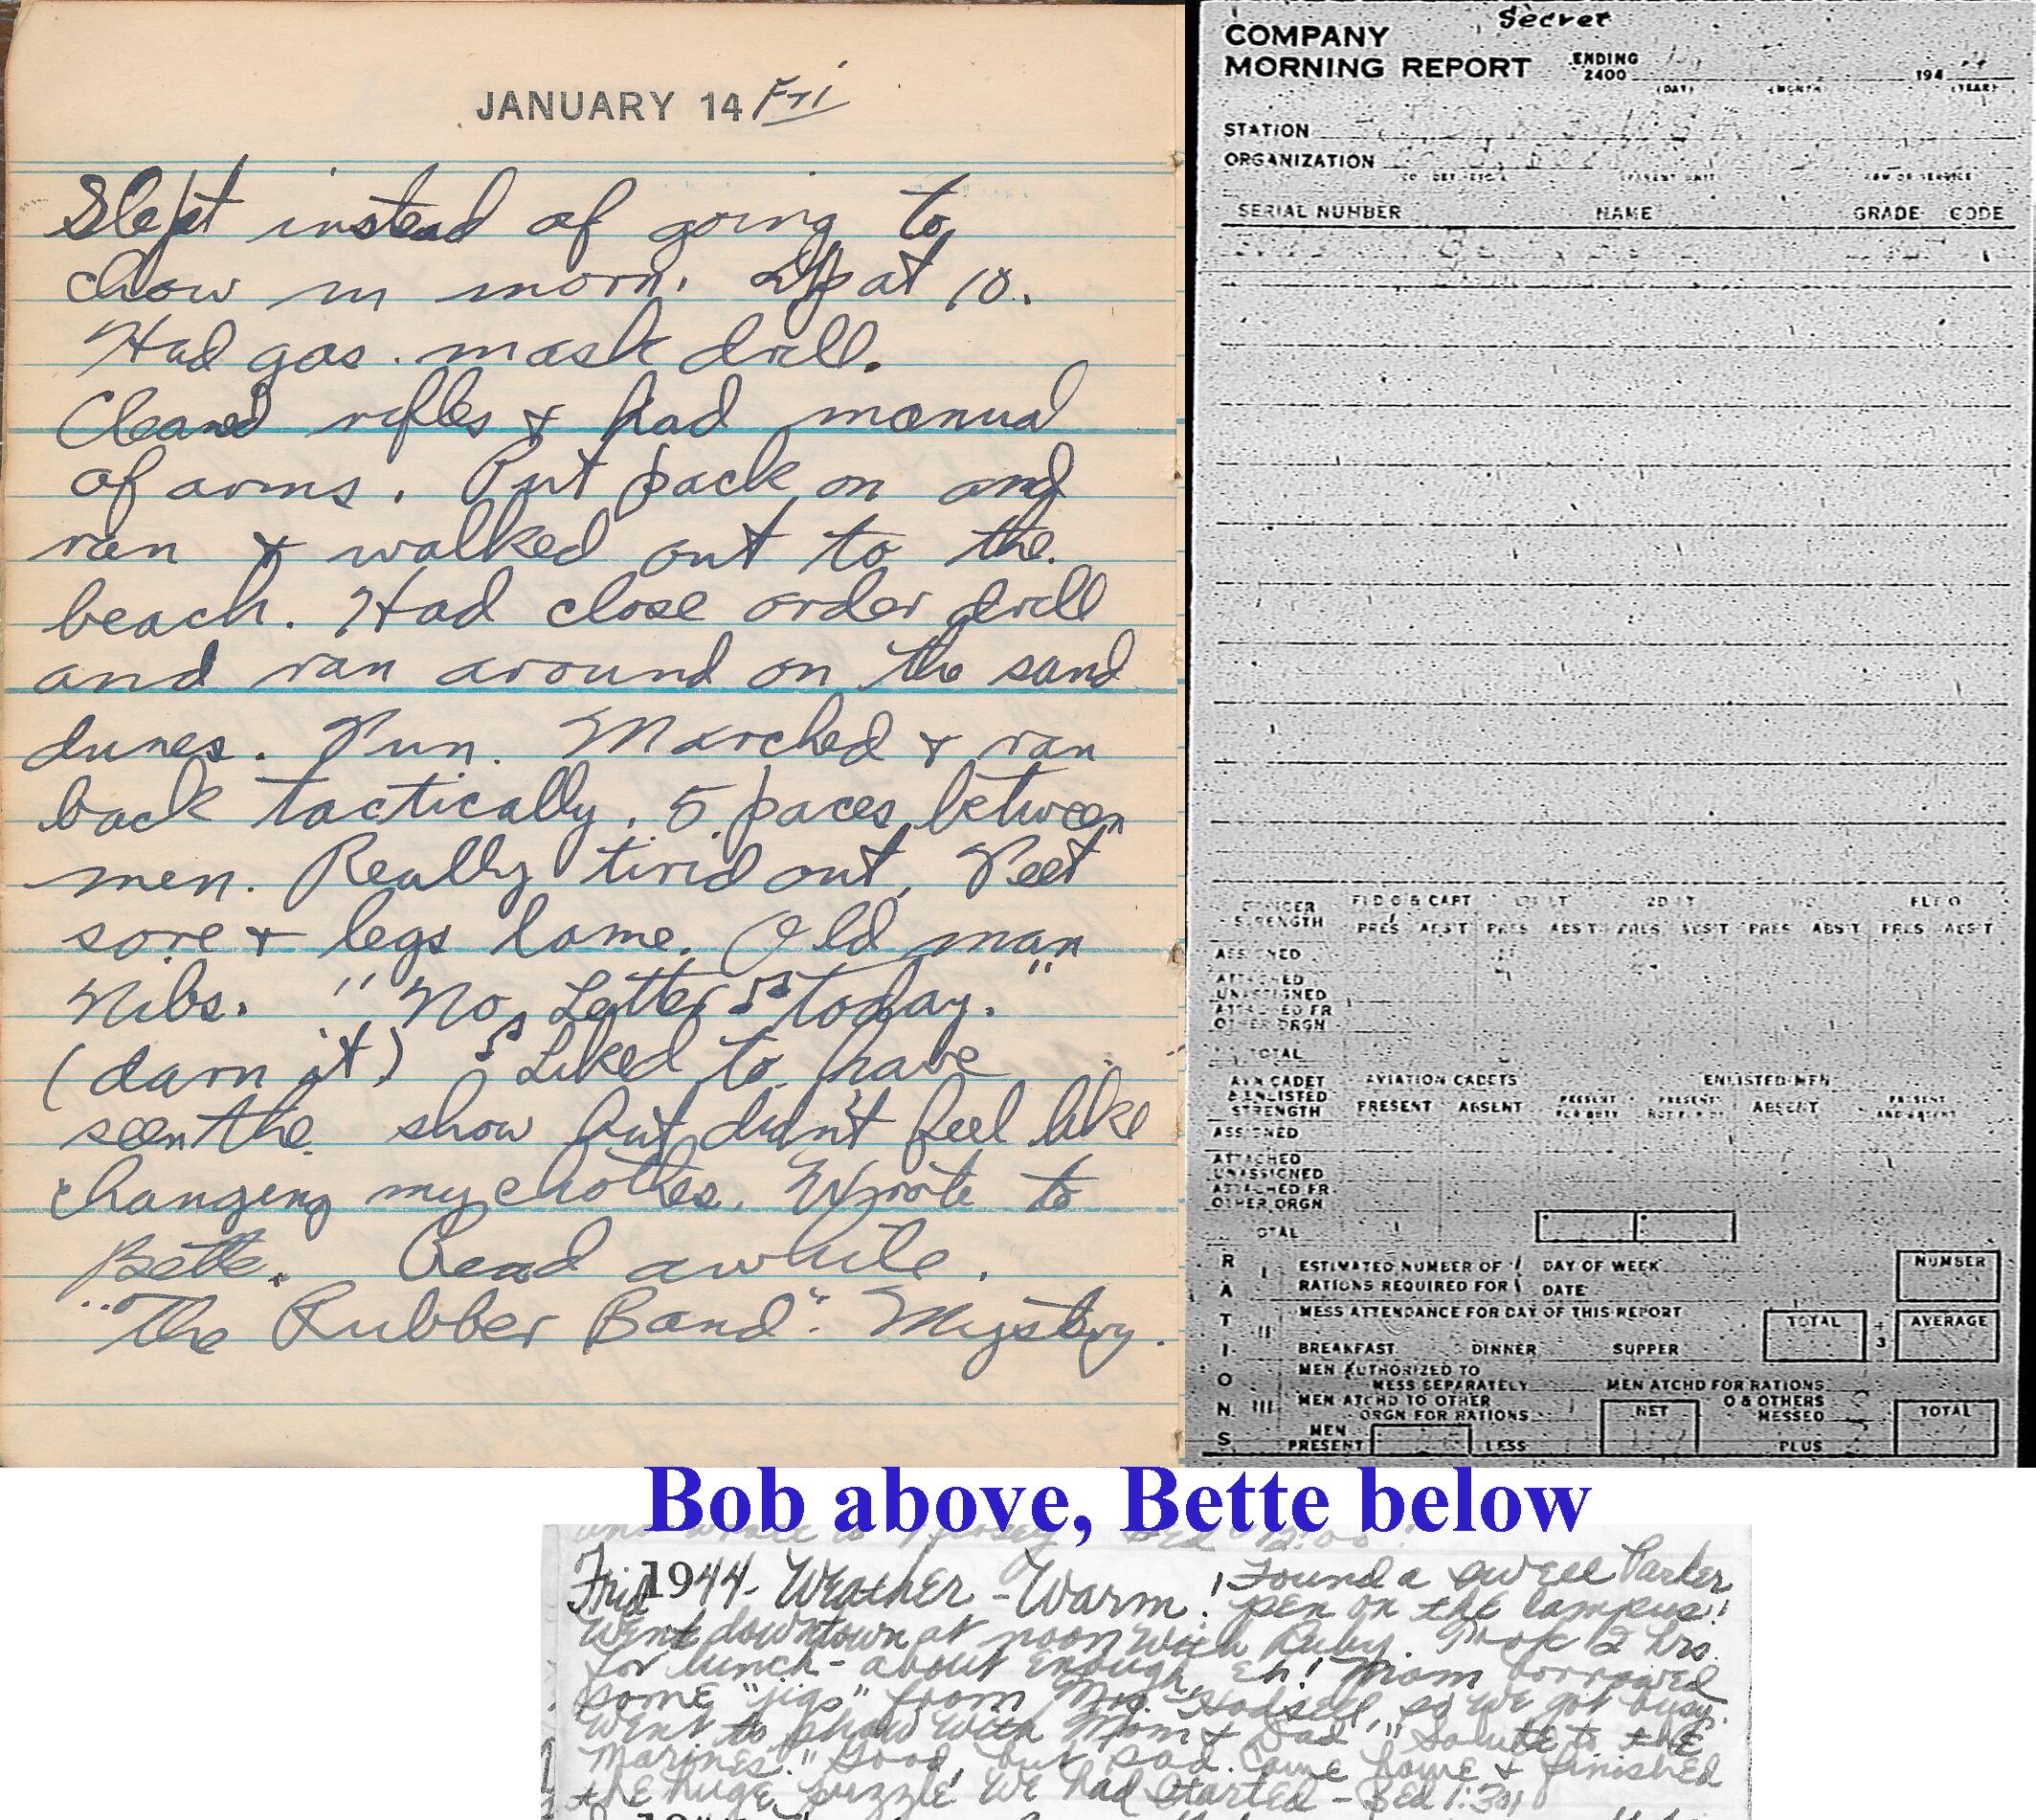 JANUARY 14 Fri
Slept instead of going to
chow in morn. Up at 10.
Had gas mask drill.
Cleaned rifles & had manual
of arms. Put pack on and
ran & walked out to the
beach. Had close order drill
and ran around on the sand
dunes. Fun. Marched & ran
back tactically. 5 paces between
men. Really tired out. Feet
sore & legs lame. Old man
Nibs. "No Letter today."
(darn it) Liked to have
seen the show but didn't feel like
changing my clothes. Wrote to
Bette. Read awhile.
"The Rubber Band". Mystery.
Secret
COMPANY
MORNING REPORT ENDING 2400 194
(DAY) (MONTH) (YEAR)
STATION
ORGANIZATION
SERIAL NUMBER NAME GRADE CODE
STRENGTH PRES ABS'T PRES ABS'T PRES ABS'T PRES ABS'T PRES ABS'T
ASSIGNED
ATTACHED
UNASSIGNED
ATTACHED FR
OTHER ORGN
TOTAL
AVN CADET AVIATION CADETS ENLISTED MEN
& ENLISTED
STRENGTH PRESENT ABSENT PRESENT FOR DUTY PRESENT ABSENT PRESENT AND ABSENT
ASSIGNED
ATTACHED
UNASSIGNED
ATTACHED FR
OTHER ORGN
TOTAL
RATIONS
I ESTIMATED NUMBER OF DAY OF WEEK NUMBER
RATIONS REQUIRED FOR DATE
II MESS ATTENDANCE FOR DAY OF THIS REPORT TOTAL AVERAGE
BREAKFAST DINNER SUPPER ÷ 3
III MEN AUTHORIZED TO
MESS SEPARATELY MEN ATCHD FOR RATIONS
MEN ATCHD TO OTHER O & OTHERS
ORGN FOR RATIONS NET MESSED TOTAL
MEN
PRESENT LESS PLUS
Bob above, Bette below
Frid 1944 - Weather - Warm! Found a swell Parker
pen on the campus!
Went downtown at noon with Ruby. Took 2 hrs.
for lunch - about enough, eh! Mom borrowed
some "jigs" from Mrs. Hodsell, so we got busy.
Went to show with Mom & Dad "Salute to the
Marines." Good, but sad. Came home & finished
the huge puzzle we had started - Bed 1:30